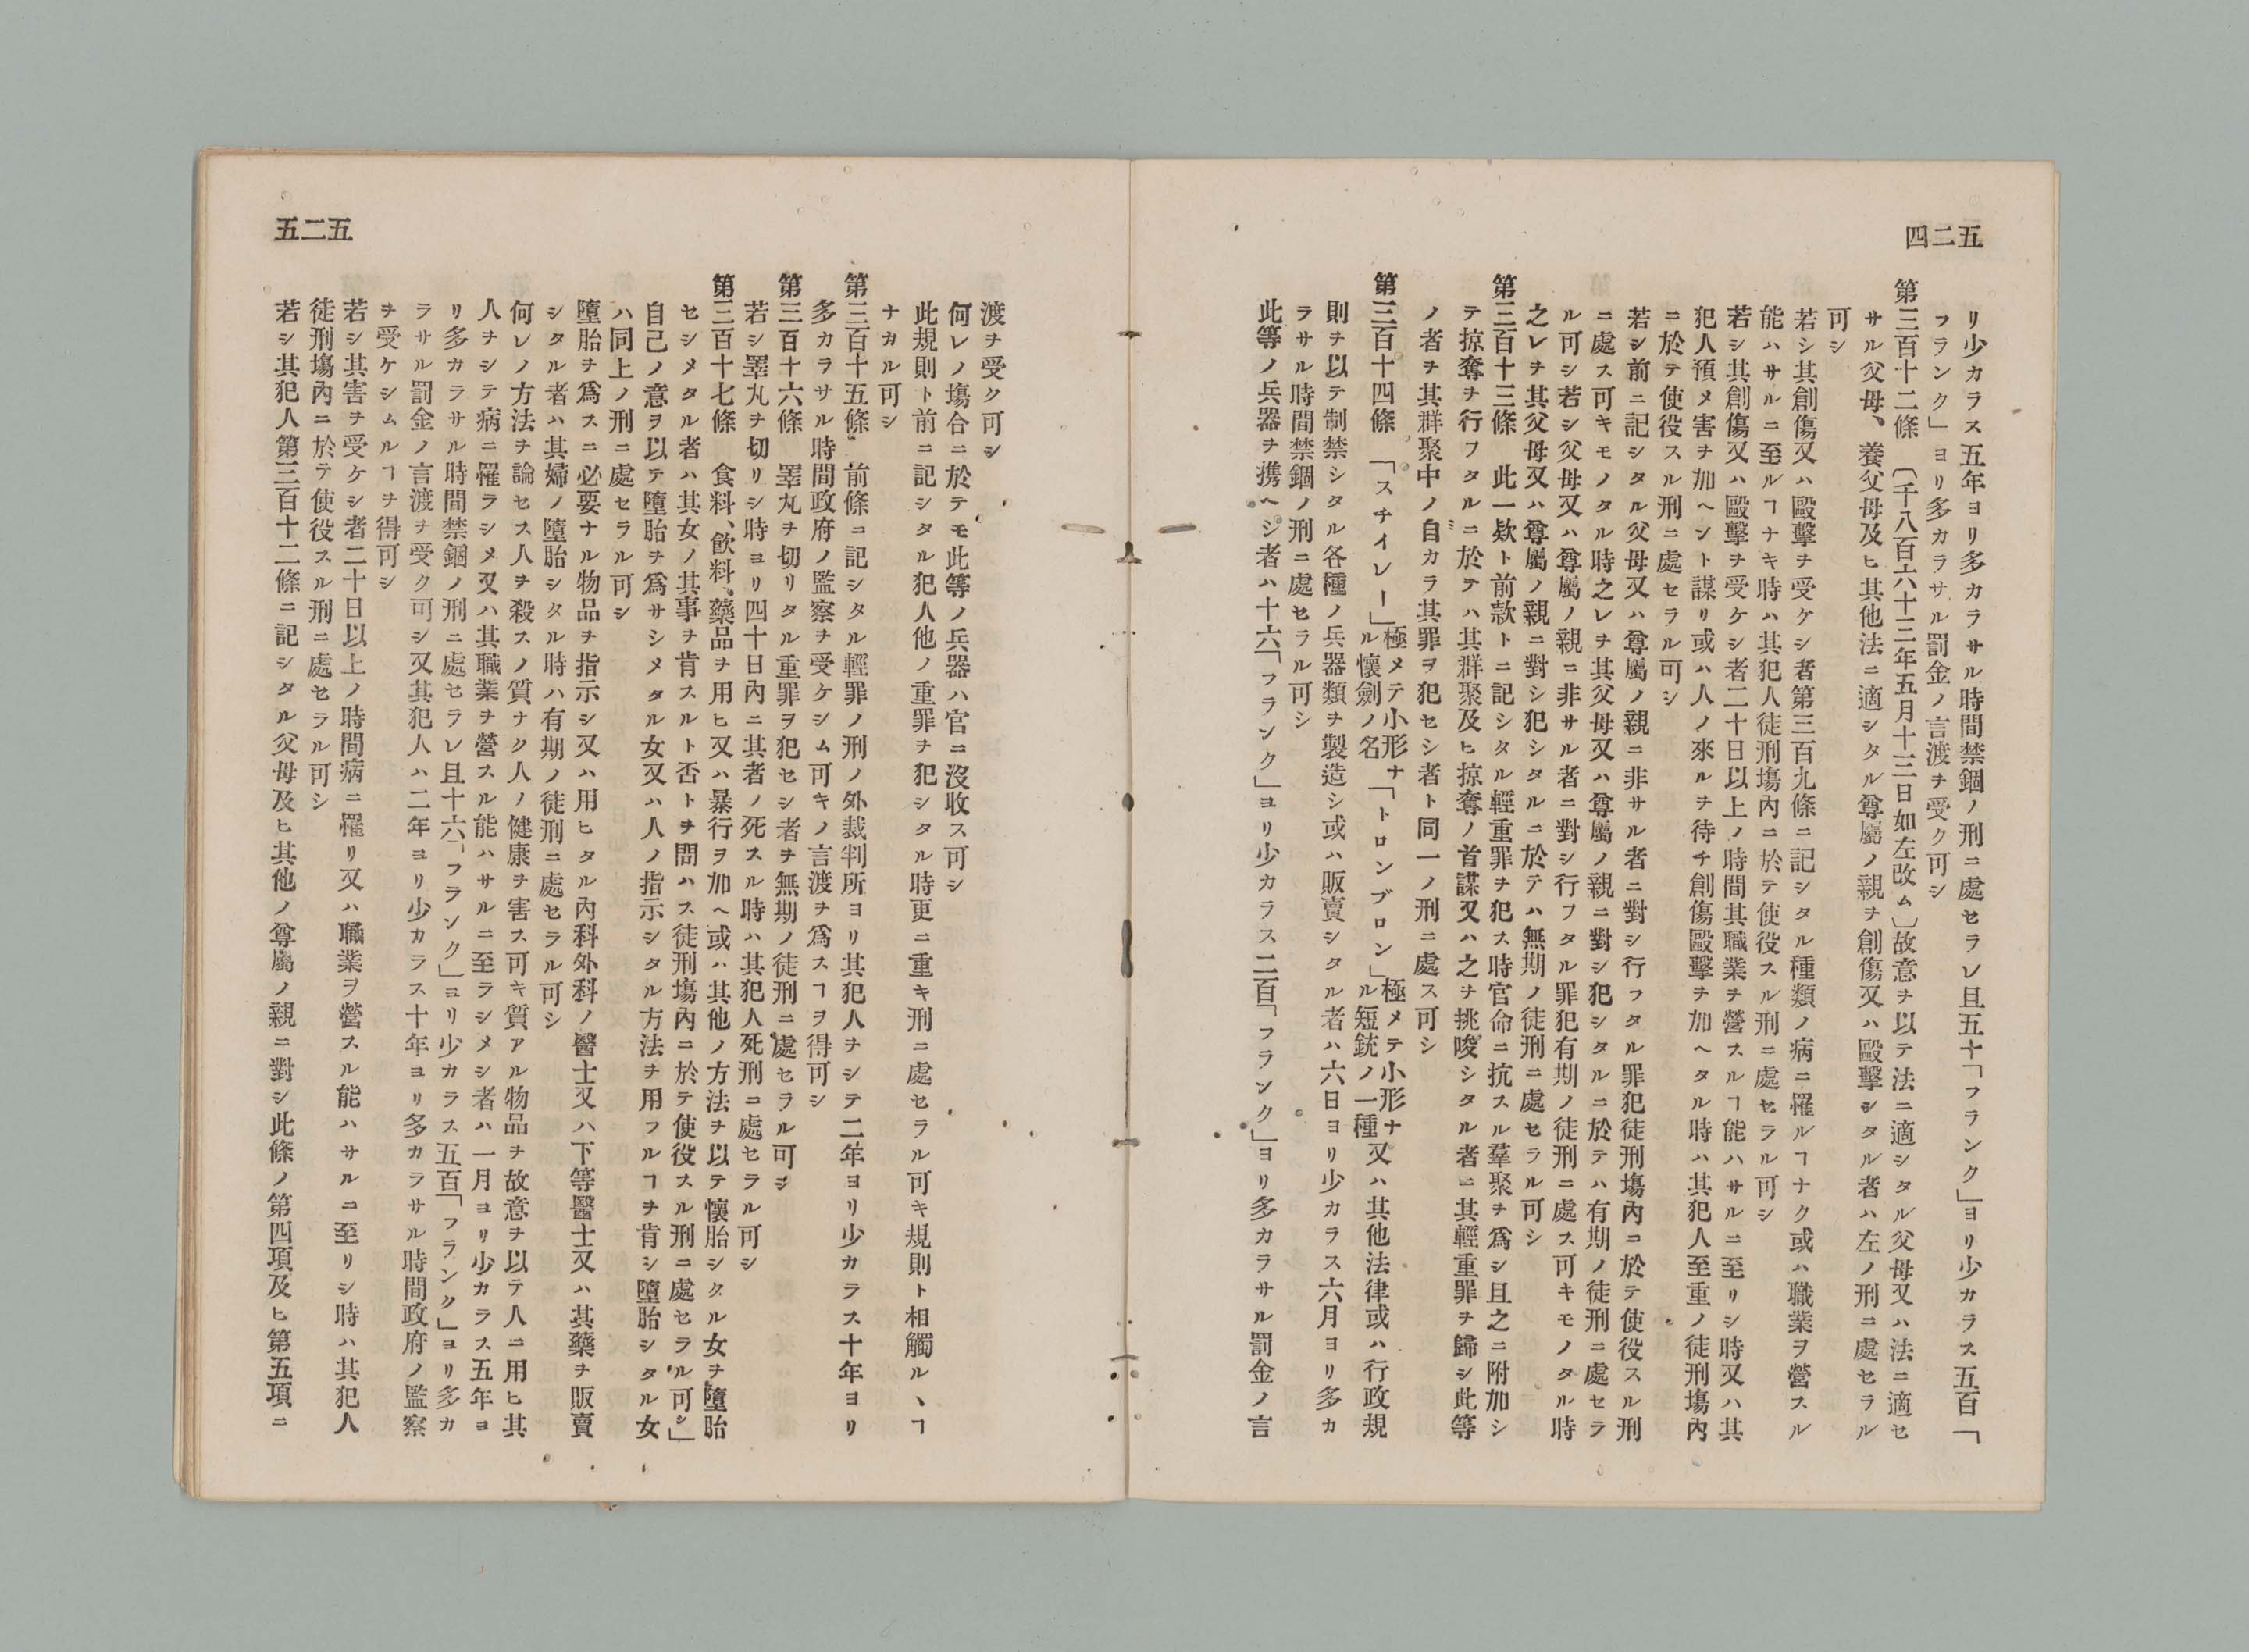 五二四
リ少カラス五年ヨリ多カラサル時間禁錮ノ刑ニ處セラレ且五十「フランク」ヨリ少カラス五百「
フランク」ヨリ多カラサル罰金ノ言渡ヲ受ク可シ
第三百十二條　〔千八百六十三年五月十三日如左改ム〕故意ヲ以テ法ニ適シタル父母又ハ法ニ適セ
サル父母、養父母及ヒ其他法ニ適シタル尊屬ノ親ヲ創傷又ハ毆擊シタル者ハ左ノ刑ニ處セラル
可シ
若シ其創傷又ハ毆擊ヲ受ケシ者第三百九條ニ記シタル種類ノ病ニ罹ルヿナク或ハ職業ヲ營スル
能ハサルニ至ルヿナキ時ハ其犯人徒刑塲內ニ於テ使役スル刑ニ處セラル可シ
若シ其創傷又ハ毆擊ヲ受ケシ者二十日以上ノ時間其職業ヲ營スルヿ能ハサルニ至リシ時又ハ其
犯人預メ害ヲ加ヘント謀リ或ハ人ノ來ルヲ待チ創傷毆擊ヲ加ヘタル時ハ其犯人至重ノ徒刑塲內
ニ於テ使役スル刑ニ處セラル可シ
若シ前ニ記シタル父母又ハ尊屬ノ親ニ非サル者ニ對シ行フタル罪犯徒刑塲內ニ於テ使役スル刑
ニ處ス可キモノタル時之レヲ其父母又ハ尊屬ノ親ニ對シ犯シタルニ於テハ有期ノ徒刑ニ處セラ
ル可シ若シ父母又ハ尊屬ノ親ニ非サル者ニ對シ行フタル罪犯有期ノ徒刑ニ處ス可キモノタル時
之レヲ其父母又ハ尊屬ノ親ニ對シ犯シタルニ於テハ無期ノ徒刑ニ處セラル可シ
第三百十三條　此一欵ト前款トニ記シタル輕重罪ヲ犯ス時官命ニ抗スル羣聚ヲ爲シ且之ニ附加シ
テ掠奪ヲ行フタルニ於テハ其群聚及ヒ掠奪ノ首謀又ハ之ヲ挑唆シタル者ニ其輕重罪ヲ歸シ此等
ノ者ヲ其群聚中ノ自カラ其罪ヲ犯セシ者ト同一ノ刑ニ處ス可シ
第三百十四條　「スチイレー」極メテ小形ナル懷劍ノ名「トロンブロン」極メテ小形ナル短銃ノ一種又ハ其他法律或ハ行政規
則ヲ以テ制禁シタル各種ノ兵器類ヲ製造シ或ハ販賣シタル者ハ六日ヨリ少カラス六月ヨリ多カ
ラサル時間禁錮ノ刑ニ處セラル可シ
此等ノ兵器ヲ携ヘシ者ハ十六「フランク」ヨリ少カラス二百「フランク」ヨリ多カラサル罰金ノ言
五二五
渡ヲ受ク可シ
何レノ塲合ニ於テモ此等ノ兵器ハ官ニ沒收ス可シ
此規則ト前ニ記シタル犯人他ノ重罪ヲ犯シタル時更ニ重キ刑ニ處セラル可キ規則ト相觸ルヽヿ
ナカル可シ
第三百十五條　前條ニ記シタル輕罪ノ刑ノ外裁判所ヨリ其犯人ヲシテ二年ヨリ少カラス十年ヨリ
多カラサル時間政府ノ監察ヲ受ケシム可キノ言渡ヲ爲スヿヲ得可シ
第三百十六條　睪丸ヲ切リタル重罪ヲ犯セシ者ヲ無期ノ徒刑ニ處セラル可シ
若シ睪丸ヲ切リシ時ヨリ四十日內ニ其者ノ死スル時ハ其犯人死刑ニ處セラル可シ
第三百十七條　食料、飮料、藥品ヲ用ヒ又ハ暴行ヲ加ヘ或ハ其他ノ方法ヲ以テ懷胎シタル女ヲ墮胎
セシメタル者ハ其女ノ其事ヲ肯スルト否トヲ問ハス徒刑塲內ニ於テ使役スル刑ニ處セラル可シ」
自己ノ意ヲ以テ墮胎ヲ爲サシメタル女又ハ人ノ指示シタル方法ヲ用フルヿヲ肯シ墮胎シタル女
ハ同上ノ刑ニ處セラル可シ
墮胎ヲ爲スニ必要ナル物品ヲ指示シ又ハ用ヒタル內科外科ノ醫士又ハ下等醫士又ハ其藥ヲ販賣
シタル者ハ其婦ノ墮胎シタル時ハ有期ノ徒刑ニ處セラル可シ
何レノ方法ヲ論セス人ヲ殺スノ質ナク人ノ健康ヲ害ス可キ質アル物品ヲ故意ヲ以テ人ニ用ヒ其
人ヲシテ病ニ罹ラシメ又ハ其職業ヲ營スル能ハサルニ至ラシメシ者ハ一月ヨリ少カラス五年ヨ
リ多カラサル時間禁錮ノ刑ニ處セラレ且十六「フランク」ヨリ少カラス五百「フランク」ヨリ多カ
ラサル罰金ノ言渡ヲ受ク可シ又其犯人ハ二年ヨリ少カラス十年ヨリ多カラサル時間政府ノ監察
ヲ受ケシムルヿヲ得可シ
若シ其害ヲ受ケシ者二十日以上ノ時間病ニ罹リ又ハ職業ヲ營スル能ハサルニ至リシ時ハ其犯人
徒刑塲內ニ於テ使役スル刑ニ處セラル可シ
若シ其犯人第三百十二條ニ記シタル父母及ヒ其他ノ尊屬ノ親ニ對シ此條ノ第四項及ヒ第五項ニ